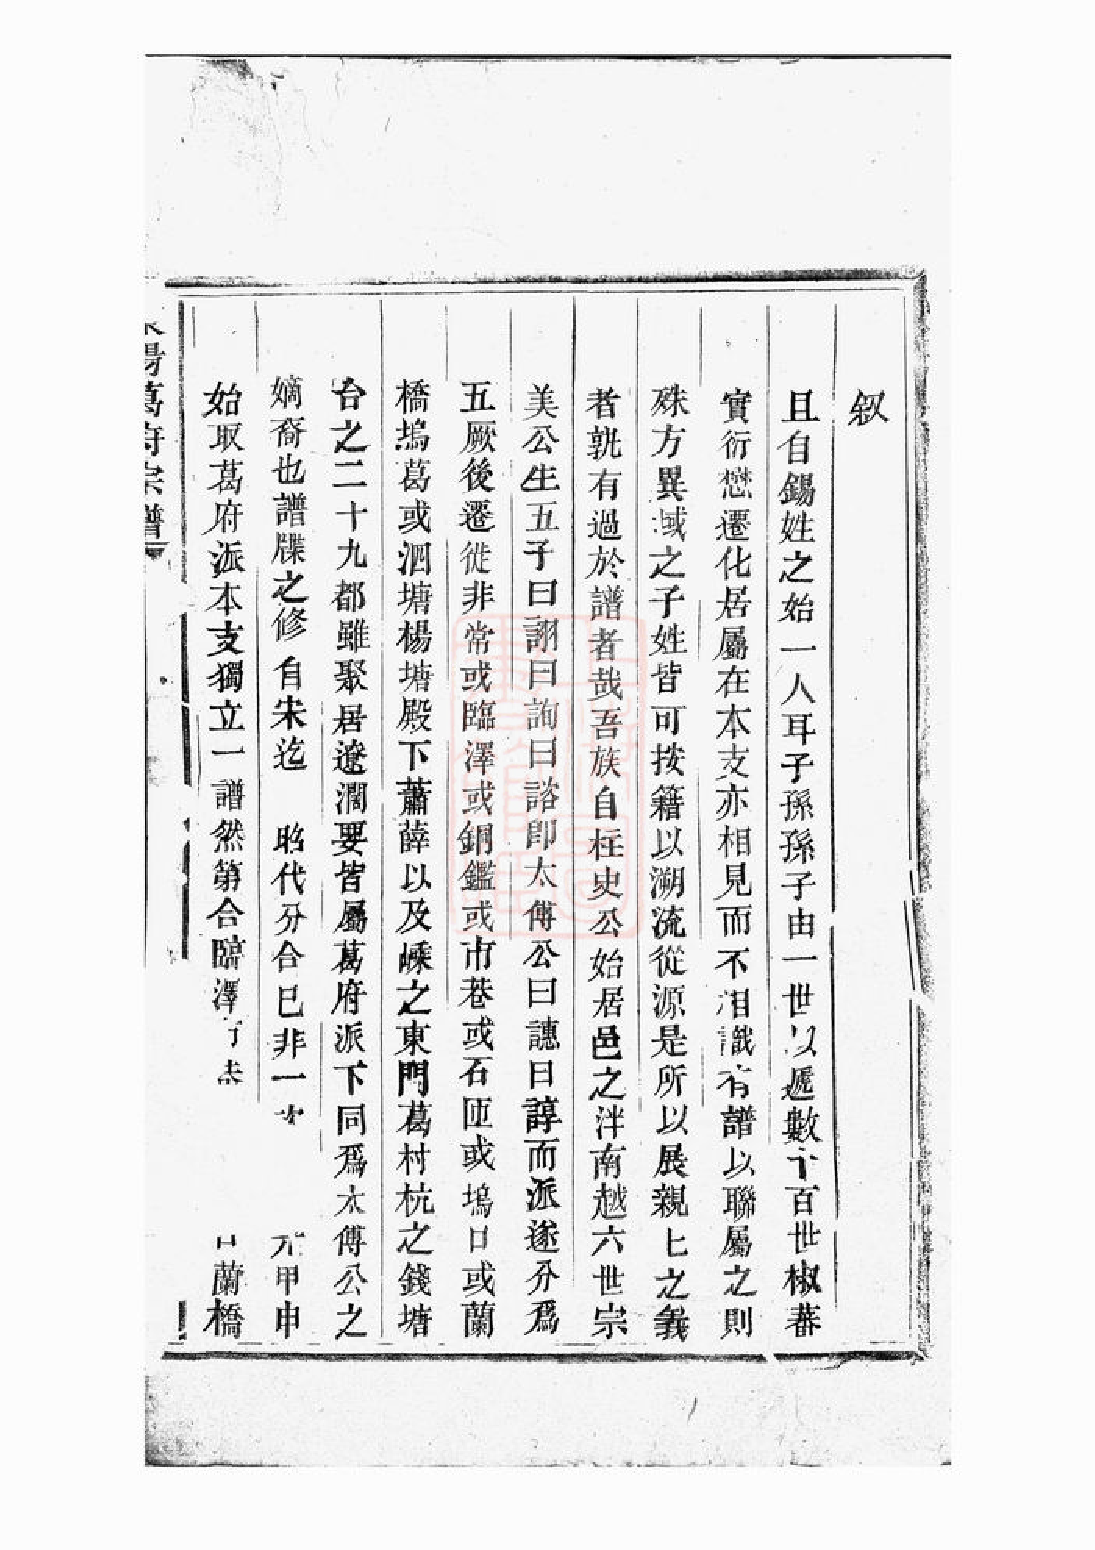 叙
且自錫姓之始一人耳子孫孫子由一世以遞數千百世椒蕃
實衍愁遷化居屬在本支亦相見而不相識有譜以聯屬之則
殊方異域之子姓皆可按籍以溯流從源是所以展親上之義
者孰有過於譜者哉吾族自柱史公始居邑之泮南越六世宗
美公生五子曰詡曰詢曰諮即太傅公曰譓曰諄而派遂分為
五厥後遷徙非常或臨澤或銅鑑或市巷或石匝或塢口或蘭
橋塢葛或泗塘楊塘殿下蕭薛以及嵊之東門葛村杭之錢塘
台之二十九都雖聚居遼濶要皆屬葛府派下同爲太傅公之
嫡裔也譜牒之修自宋迄 昭代分合已非一 元甲申
始取葛府派本支獨立一譜然第合臨澤 蘭橋
陽葛府宗譜